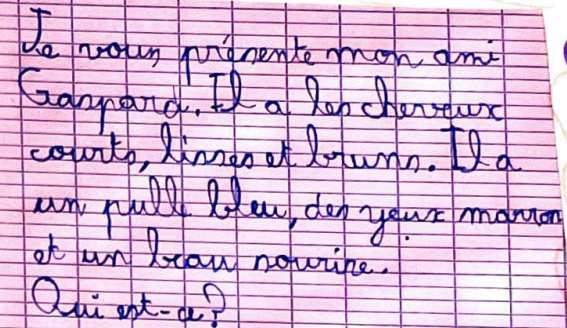 Je vous présente mon ami
Gaspard. Il a les cheveux
courts, lisses et bruns. Il a
un pull bleu, des yeux marron
et un beau sourire.
Qui est-ce?